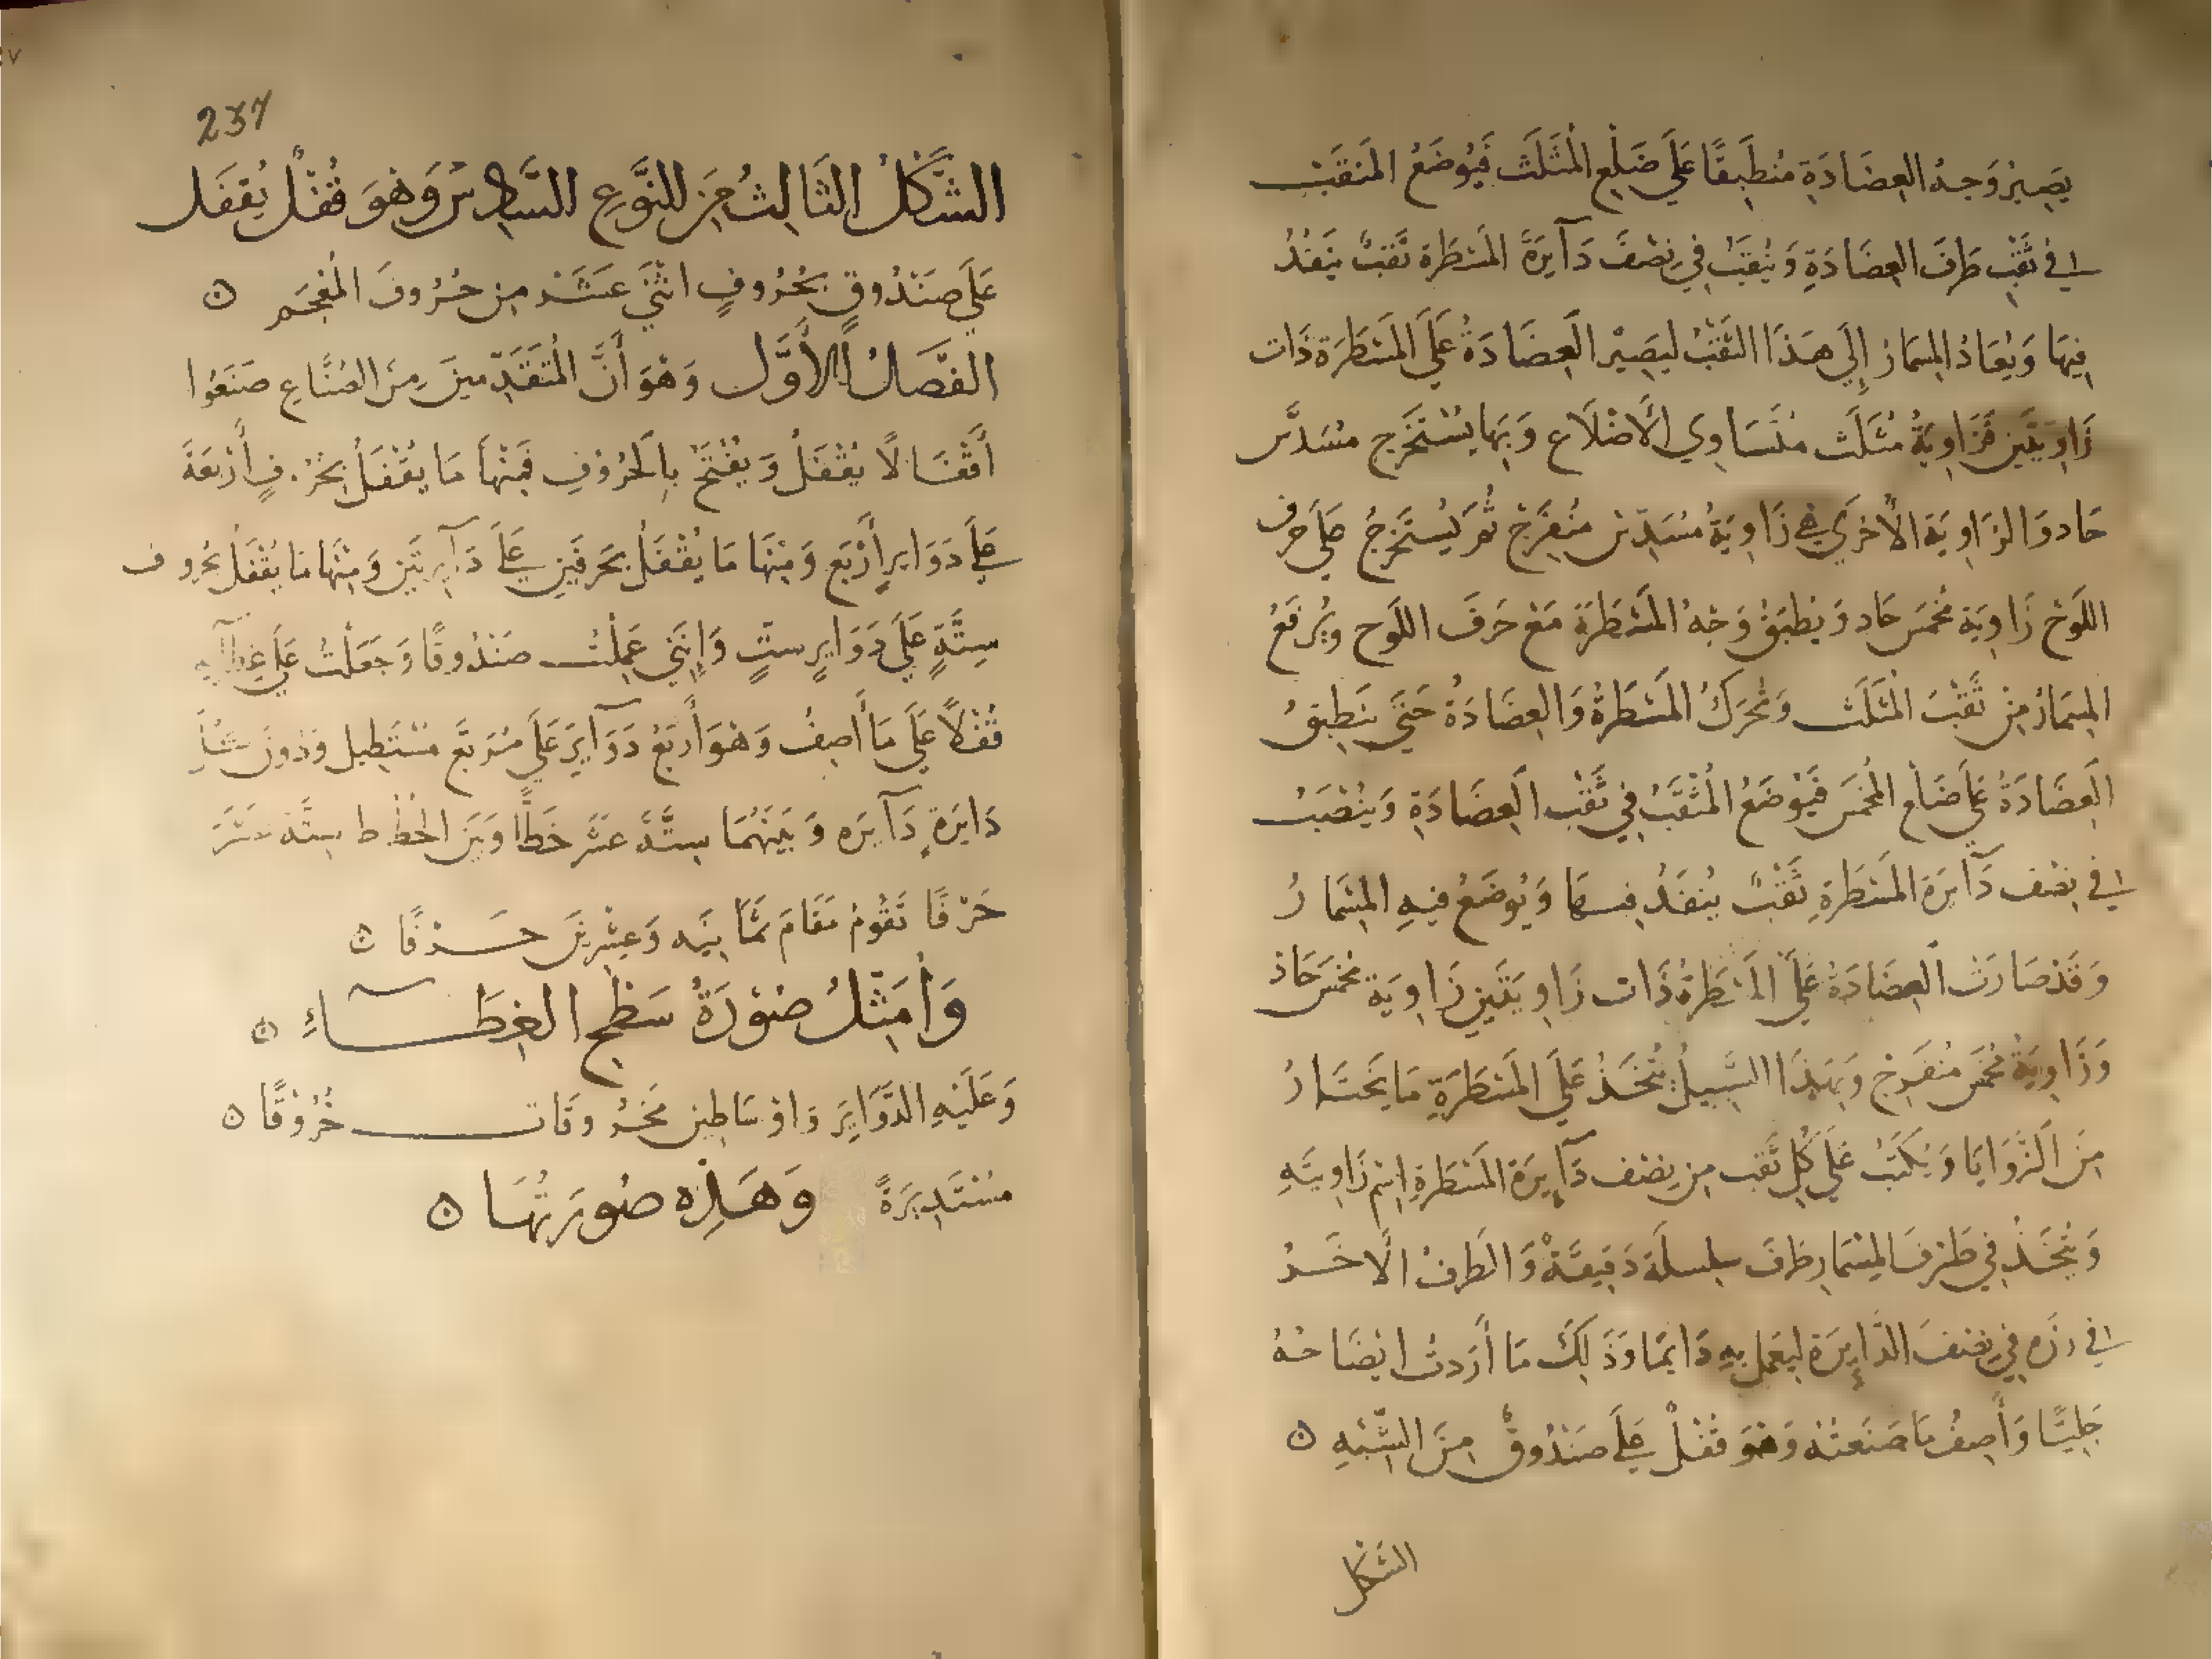 يَصِيرُ وَجهُ العِضَادَةِ مُنطَبِقًا عَلَى ضَلْعِ المُثَلَّث فَيُوضَعُ المَثقَب
في ثَقْبِ طَرَف العِضَادَةِ وَيُثقَبُ فِي نِصْف دَآيِرَةِ المَسْطَرَةِ ثَقبٌ يَنفُذُ
فِيهَا وَيُعَادُ المِسمَارُ إِلَى هَذَا الثَّقْبِ لِيَصِيرَ العِضَادَةُ عَلَى المَسْطَرَةِ ذَات
زَاوِيَتَين فَزَاوِيَةُ مُثَلَّث مُتَسَاوِي الأَضْلَاع وَبِهَا يُسْتَخرَج مُسَدَّس
حَاد وَالزاوِيَة الأخرَى هي زَاوِيَةُ مُسَدَّس مُنفَرِج ثُمَّ يُستَخْرَجُ عَلَى حَرف
اللَّوح زَاوِيَة مُخَمَّس حَاد وَيُطبَقُ وَجْهُ المَسْطَرَة مَع حَرفِ اللَّوح وَيُرفَعُ
المِسمَارُ مِن ثَقْب المُثَلَّث وَتُحَرَّكُ المَسْطَرَةُ وَالعِضَادَةُ حَتَّى يَنطَبِقُ
العِضَادَةُ عَلَى ضَلع المُخَمَّس فَيُوضَعُ المِثْقَبُ فِي ثَقْبِ العِضَادَةِ وَيُثقَبُ
في نِصْف دَآيِرَة المَسْطَرَةِ ثَقْبٌ يُنفَذُ فِيهَا وَيُوضَعُ فِيهِ المِسْمَارُ
وَقَد صَارَت العِضَادَةُ عَلَى المَسْطَرَةِ ذَات زَاوِيَتَين زَاوِيَة مُخَمَّس حَاد
وَزَاوِيَةُ مُخَمَّس مُنفَرِج وَبِهَذَا السَّبِيل يُتَّخَذُ عَلَى المَسْطَرَةِ مَا يَختَارُ
مِنَ الزَّوَايَا وَيُكتَبُ عَلَى كُلِّ ثَقب مِن نِصْف دَآيِرَة المَسْطَرَةِ اِسْم زَاوِيَتِهِ
وَيُتَّخَذُ فِي طَرَفِ المِسْمَارِ طَرَف سِلسِلَة دَقِيقَةٍ وَالطَرفُ الآخَرُ
في رزه فِي نِصْف الدَّايِرَة لِيَعمَل بِهِ دَايمًا وَذَلِكَ مَا أَرَدتُ ايضَاحَهُ
جَلِيًّا وَأَصِفُ مَا صَنَعتُه وَهوَ قُفْلٌ عَلَى صَندُوقٍ مِنَ الشَّبَهِ ۞
الشكل
237
الشَّكْلُ الثَّالِثُ مِنَ النَّوعِ السَّادِسِ وَهوَ قُفْلٌ يُقفَل
عَلَى صَندُوقٍ بِحُرُوفٍ اثنَي عَشَر مِن حُرُوف المُعْجَم ۞
الفَصلُ الأَوَّل وَهوَ أَنَّ المُتَقَدِّمِينَ مِن الصُنَّاعِ صَنَعُوا
أَقْفَالًا يُقفَلُ وَيُفْتَحُ بِالحُرُوفِ فَمِنْهَا مَا يُقفَلُ بِحُرُوفٍ أَربَعَة
عَلَى دَوَايرٍ أَرْبَع وَمِنهَا مَا يُقفَلُ بِحَرفَين عَلَى دَآيِرَتَين وَمِنهَا مَا يُقفَلُ بحُروف
سِتَّةٍ عَلَى دَوَايرٍ سِتٍّ وَإِنَّنِي عَمِلتُ صَندُوقًا وَجَعَلتُ عَلَى غِطَآيِهِ
قُفْلاً عَلَى مَا أَصِفُ وَهوَ أَربَعُ دَوَآيِرَ عَلَى مُرَبَّع مُسْتَطِيل وَدَونَ كُلِّ
دَايرَةٍ دَآيِرَه وَبَيْنَهُمَا سِتَّةَ عَشَر خَطًّا وَبَينَ الخُطُوط سِتَّة عَشَرَ
حَرْفًا تَقُومُ مَقَامَ ثَمَانِيَه وَعِشْرِينَ حَرْفًا ۞
وَأُمَثِّلُ صُورَةُ سَطْحِ الغِطَآءِ ۞
وَعَلَيْهِ الدَّوَايرَ وَاوسَاطِهِن مَخرُوقَات خُرُوقًا ۞
مُسْتَدِيرَةً وَهَذِه صُورَتُهَا ۞